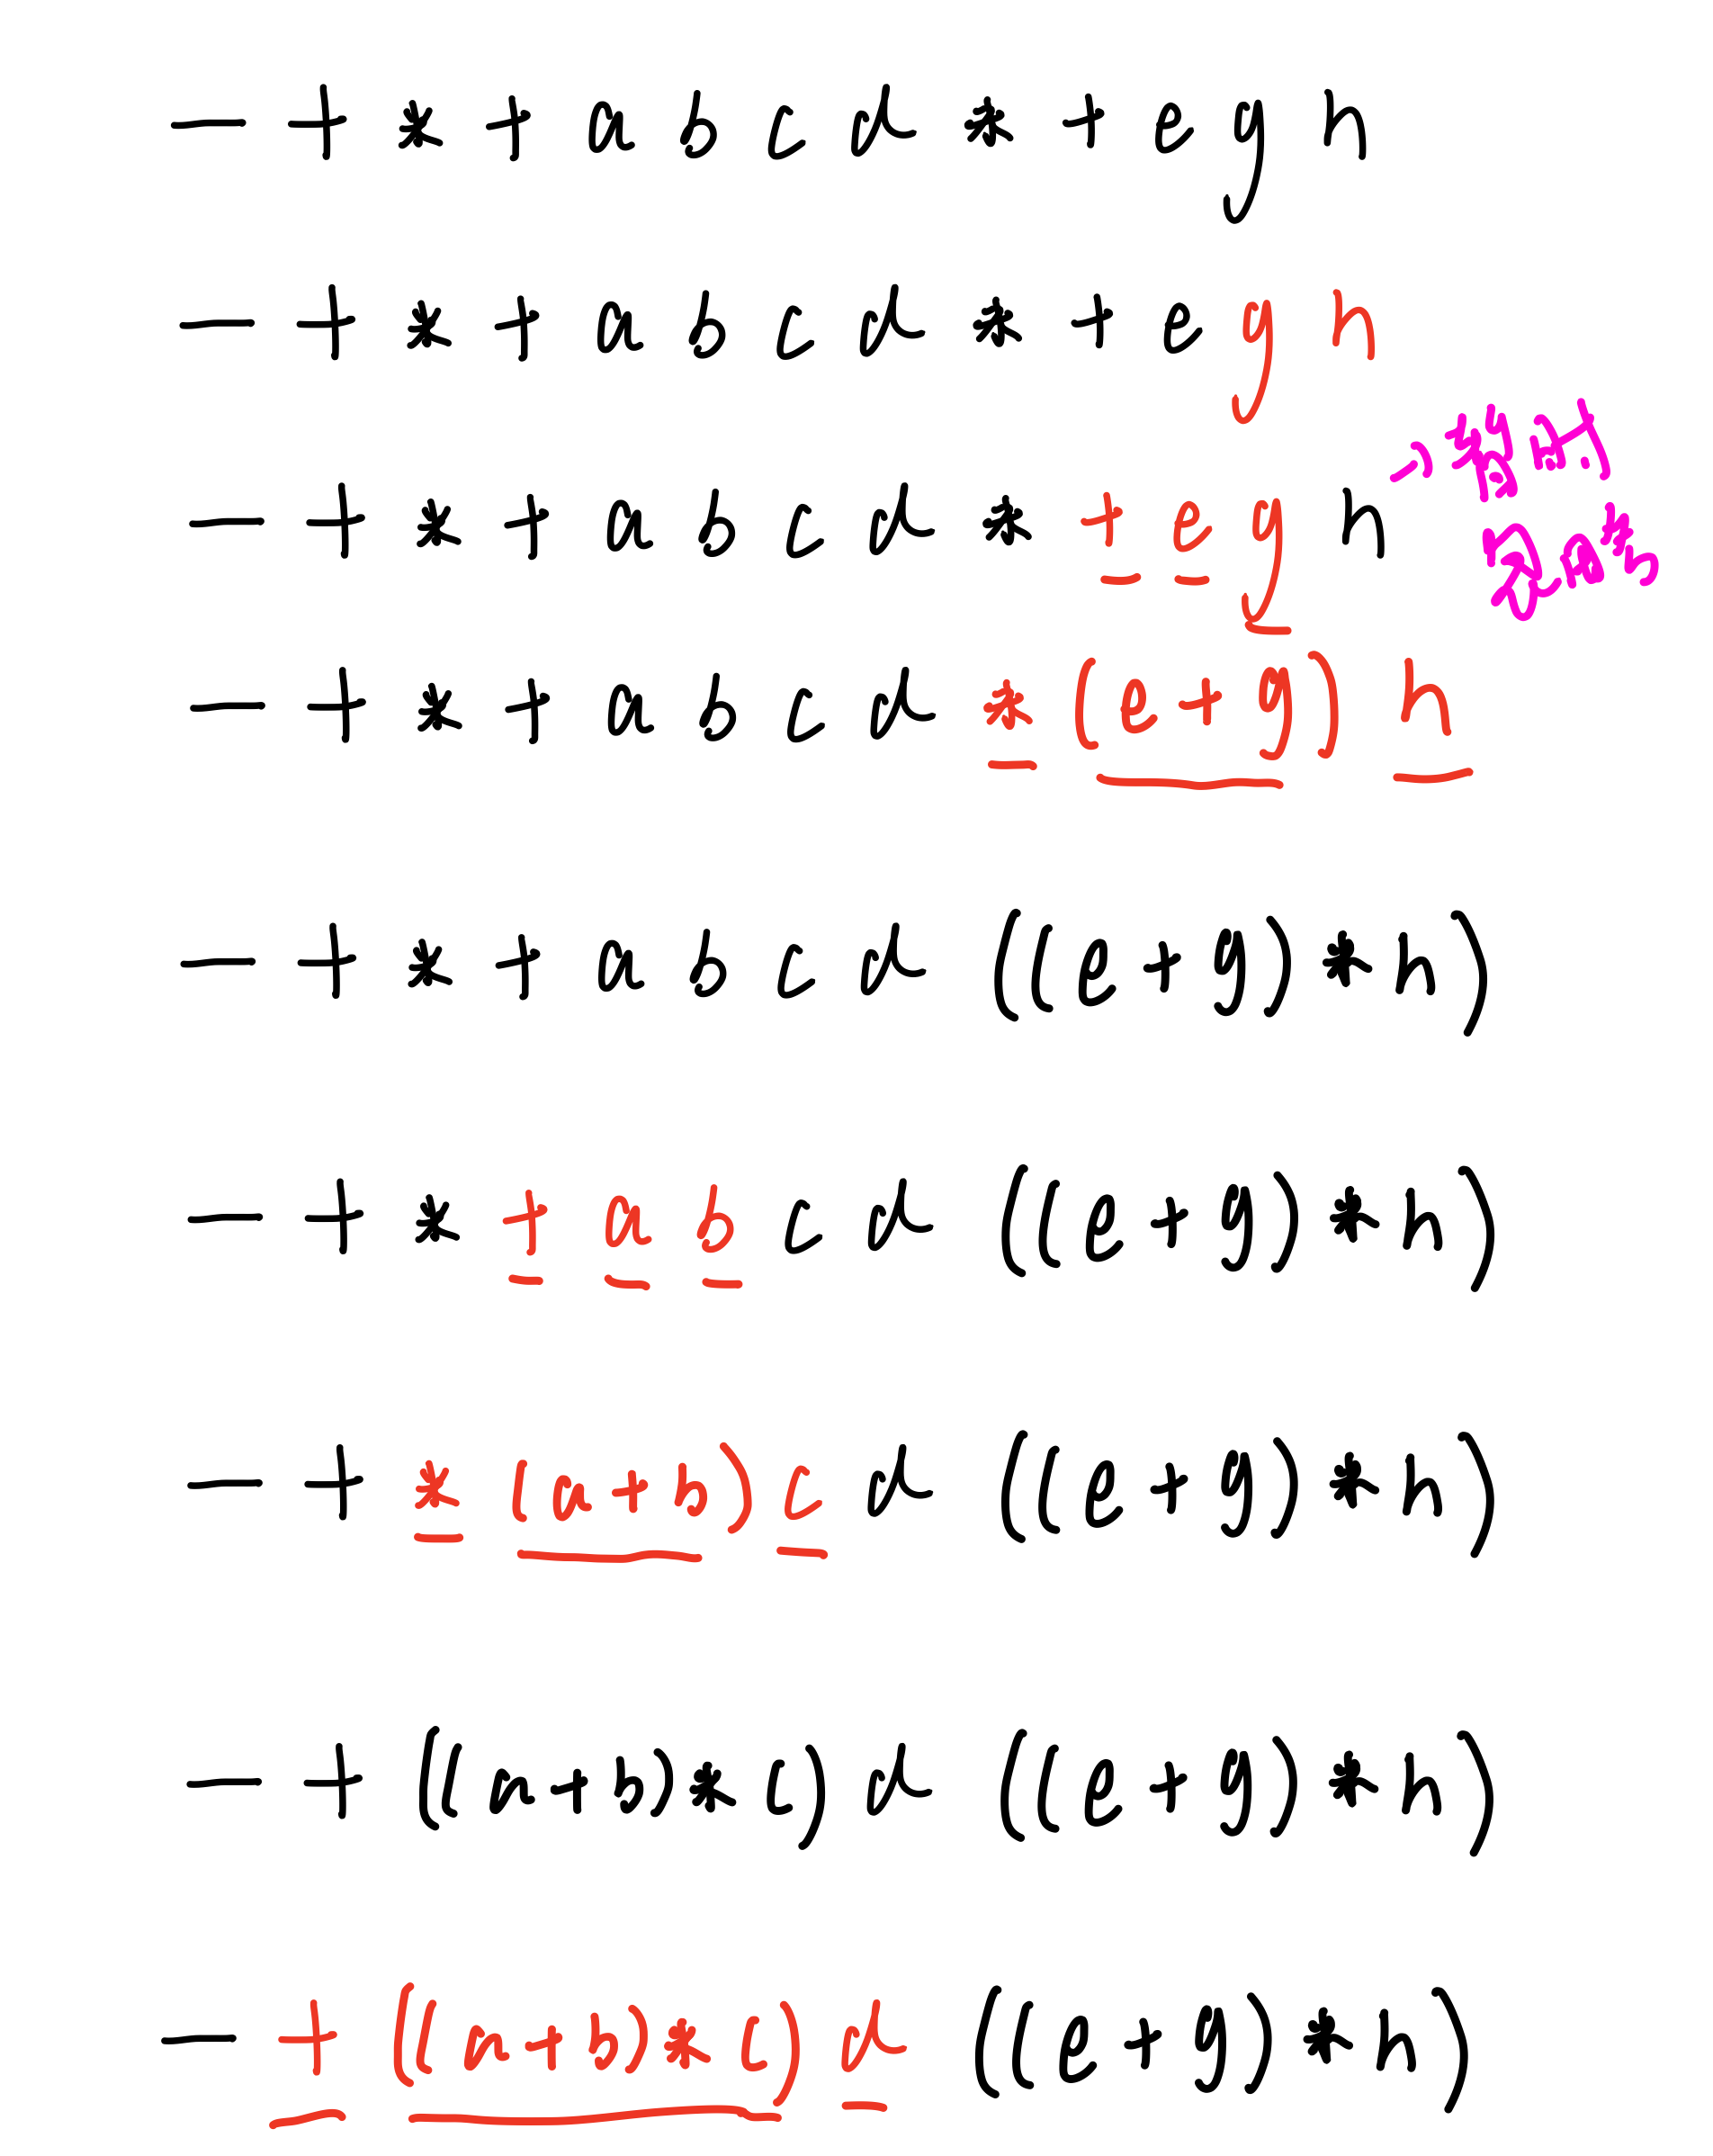 - + * + a b c d * + e g h
- + * + a b c d * + e g h
- + * + a b c d * + e g h
- + * + a b c d * (e+g) h
- + * + a b c d ((e+g)*h)
- + * + a b c d ((e+g)*h)
- + * (a+b) c d ((e+g)*h)
- + ((a+b)*c) d ((e+g)*h)
- + ((a+b)*c) d ((e+g)*h)